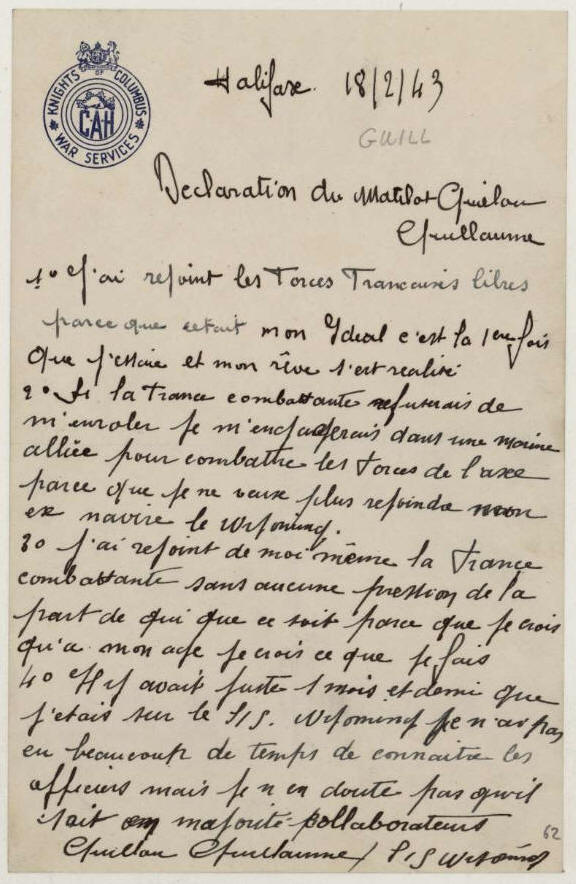 KNIGHTS OF COLUMBUS
CAH
WAR SERVICES
Halifax 18/2/43
GUILL
Declaration du Matelot Guillou
Guillaume
1° J'ai rejoint les Forces Francaises libres
parce que cetait mon Ideal c'est la 1ere fois
Que j'essaie et mon rêve s'est realisé
2° Si la France combattante refuserais de
m'enroler je m'engagerais dans une marine
alliée pour combattre les Forces de l'axe
parce que je ne veux plus rejoindre mon
ex navire le Wyoming.
30 J'ai rejoint de moi même la France
combattante sans aucune pression de la
part de qui que ce soit parce que je crois
qu'a mon age je crois ce que je fais
4° Il y avait juste 1 mois et demi que
j'etais sur le S/S. Wyoming je n'ai pas
eu beaucoup de temps de connaitre les
officiers mais je n en doute pas qu'il
soit en majorité collaborateurs
Guillou Guillaume / S/S Wyoming
62